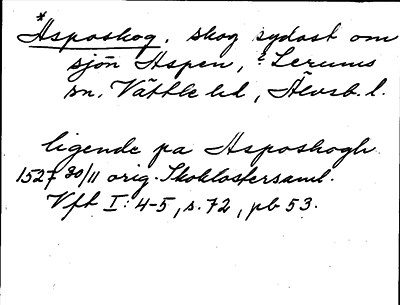 *Asposkog. skog sydost om
sjön Aspen, i Lerums
sn. Vättle hd, Älvsb. l.
ligende pa Asposkogh
1527 30/11 orig. Skoklostersaml.
Vft I: 4-5, s. 72, pb 53.